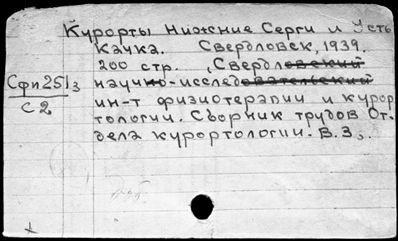 Курорты Нижние Серги и Усть
Качка. Свердловск, 1939.
200 стр. (Свердловский
Сфп251з научно-исследовательский
С2 ин-т физиотерапии и курор
тологии. Сборник трудов От-
дела курортологии. В.3).